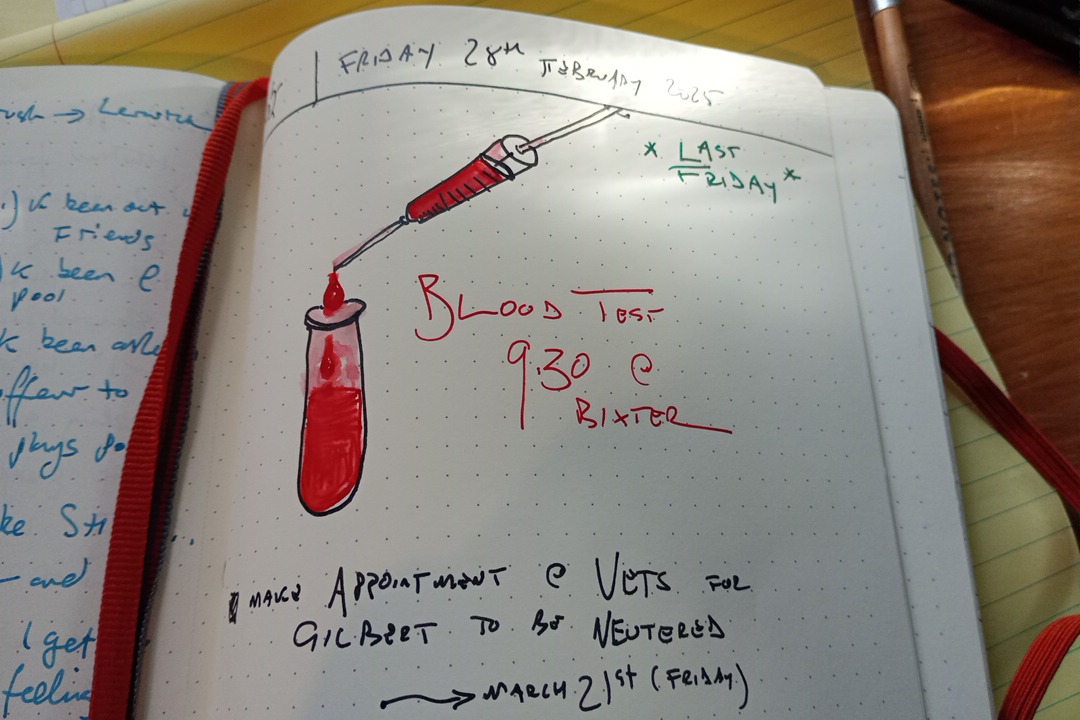 → Lerwick
been out
Friends
been @
pool
been
offer to
plays
and
I get
feeling
FRIDAY 28TH FEBRUARY 2025
* LAST
FRIDAY *
BLOOD TEST
9.30 @
BIXTER
MAKE APPOINTMENT @ VETS FOR
GILBERT TO BE NEUTERED
→ MARCH 21st (FRIDAY)